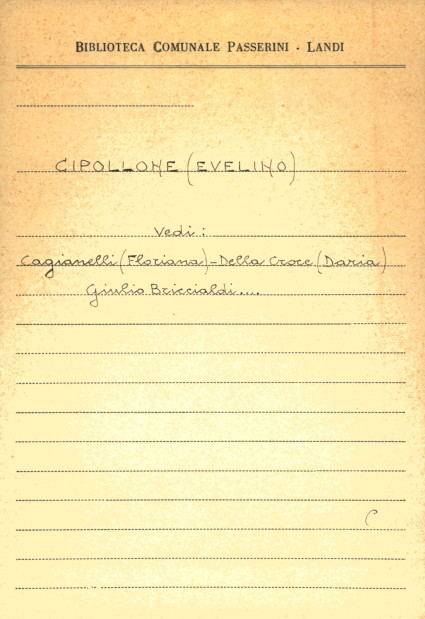 BIBLIOTECA COMUNALE PASSERINI - LANDI
CIPOLLONE (EVELINO)
Vedi:
Cagianelli (Floriana) - Della Croce (Daria)
Giulio Briccialdi....
C